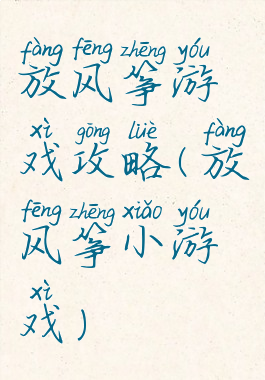 fàng fēng zhēng yóu
放风筝游
xì gōng lüè fàng
戏攻略(放
fēng zhēng xiǎo yóu
风筝小游
xì
戏)